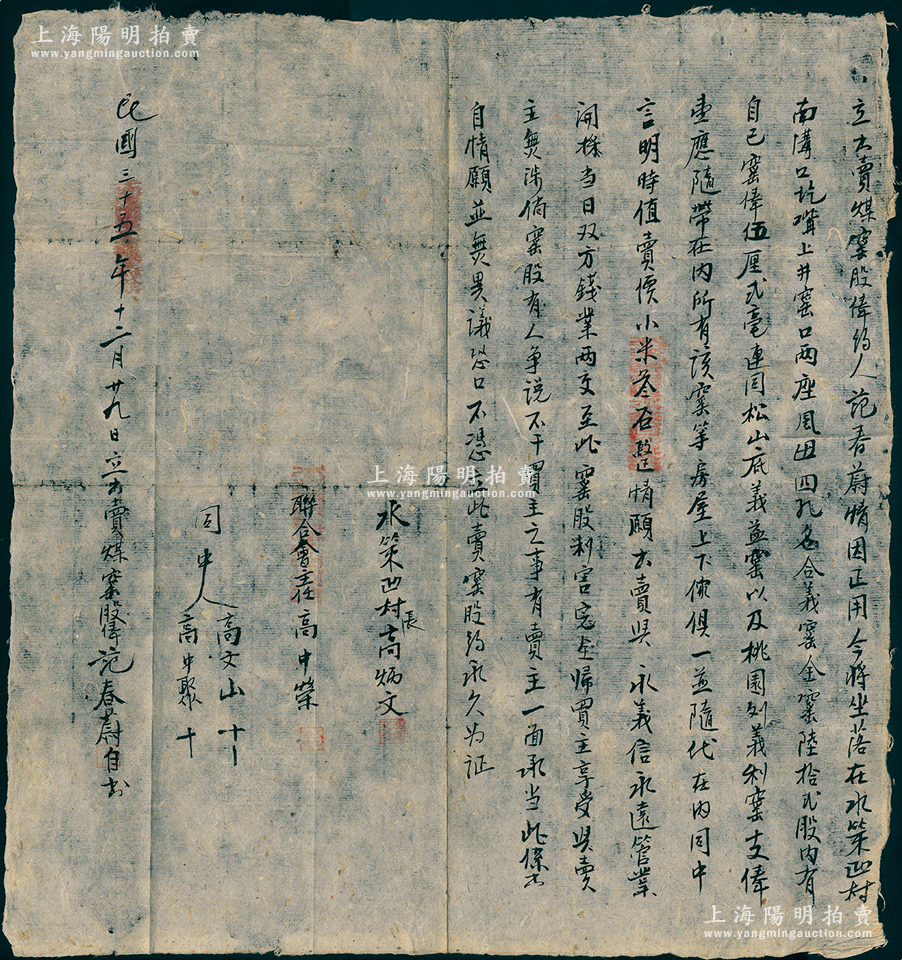 立出賣煤窰股俸約人范春蔚情因正用今將坐落在水策凹村
南溝口圪嘴上井窰口兩座風田四孔名合義窰全窰陸拾弍股內有
自己窰俸伍厘弍毫連同松山底義益窰以及桃園列義利窰支俸
壹應隨帶在內所有該窰等房屋上下傢俱一並隨代在內同中
言明時值賣價小米叁石整情願出賣與永義信永遠管業
開採當日双方錢業兩交至此窰股利害完全歸買主享受與賣
主無涉倘窰股有人爭説不干買主之事有賣主一面承当此係出
自情願並無異議恐口不憑立此賣窰股約永久为証
水策凹村長高炳文
聯合會主任高中榮
同中人
高文山十
高中聚十
民國三十五年十二月廿九日立出賣煤窰股俸范春蔚自书
上海陽明拍賣
www.yangmingauction.com
上海陽明拍賣
www.yangmingauction.com
上海陽明拍賣
www.yangmingauction.com